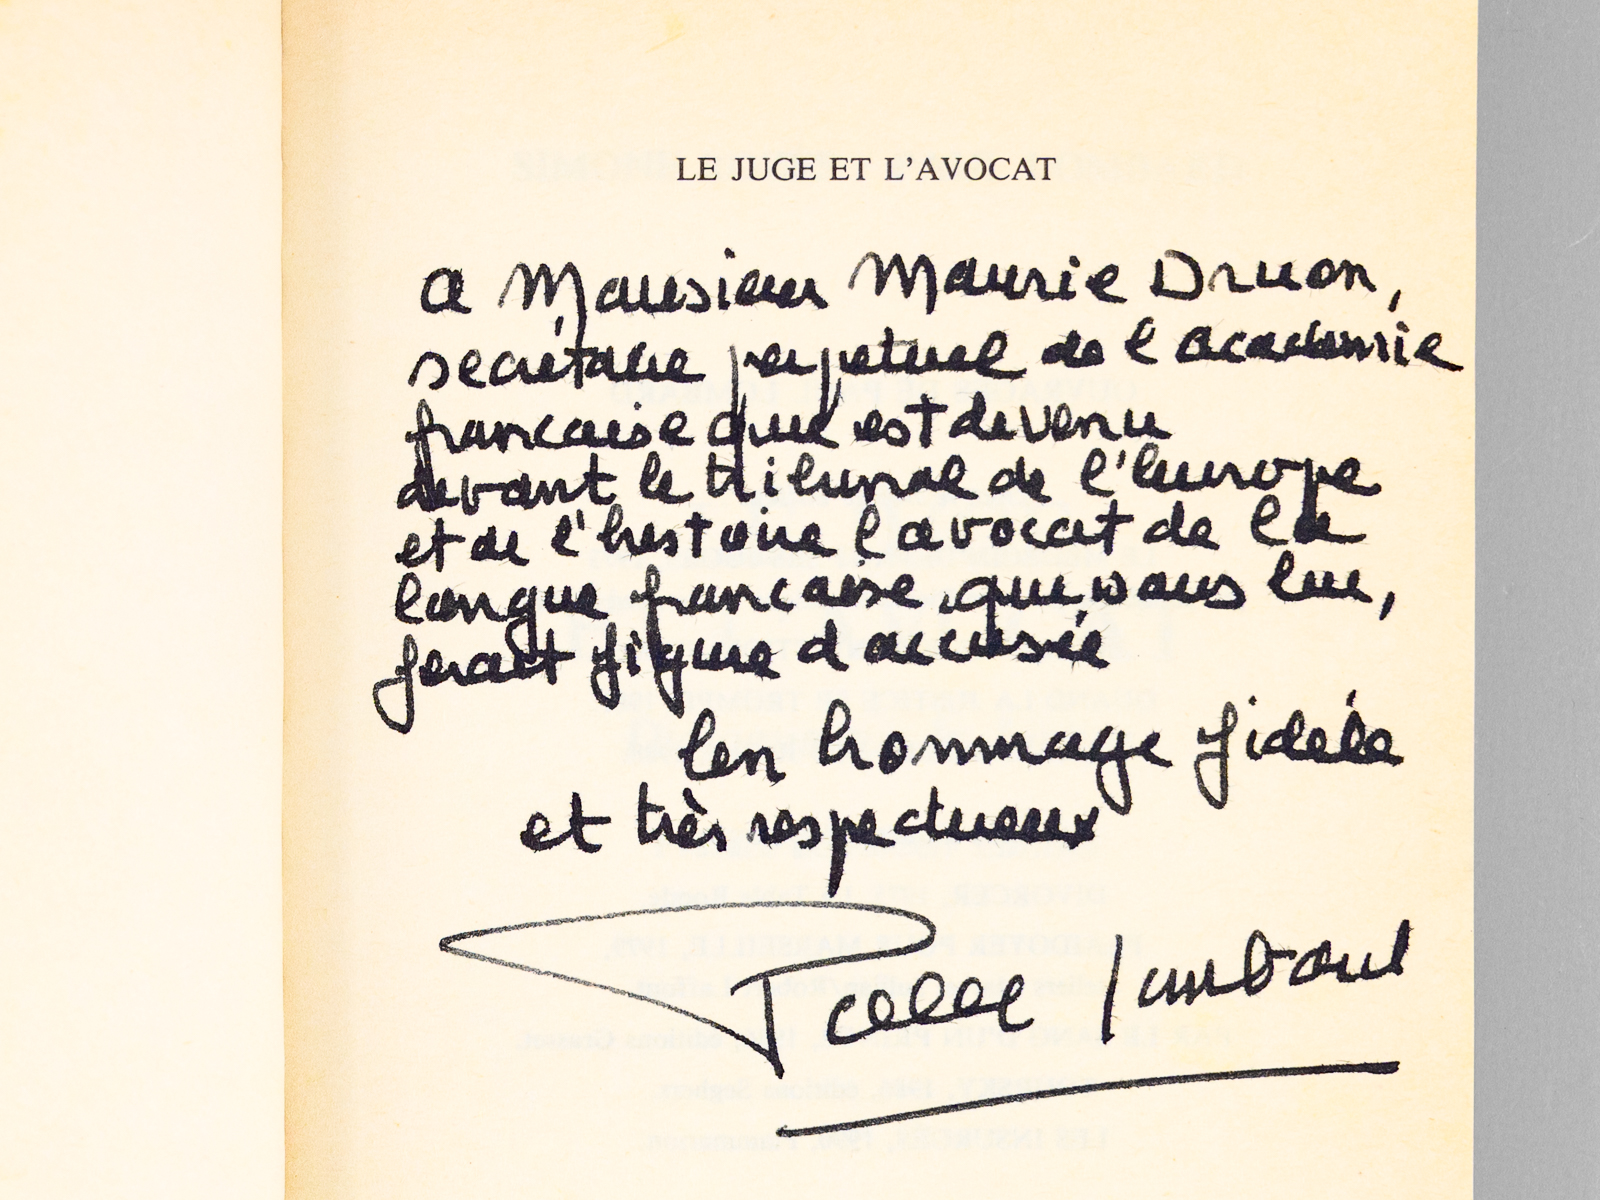 LE JUGE ET L'AVOCAT
a Monsieur Maurice Druon,
secrétaire perpetuel de l academie
francaise qui est devenu
devant le tribunal de l'europe
et de l'histoire l avocat de la
langue francaise, qui, sans lui,
ferait figure d accusée
en hommage fidèle
et très respectueux
Paul Lombard